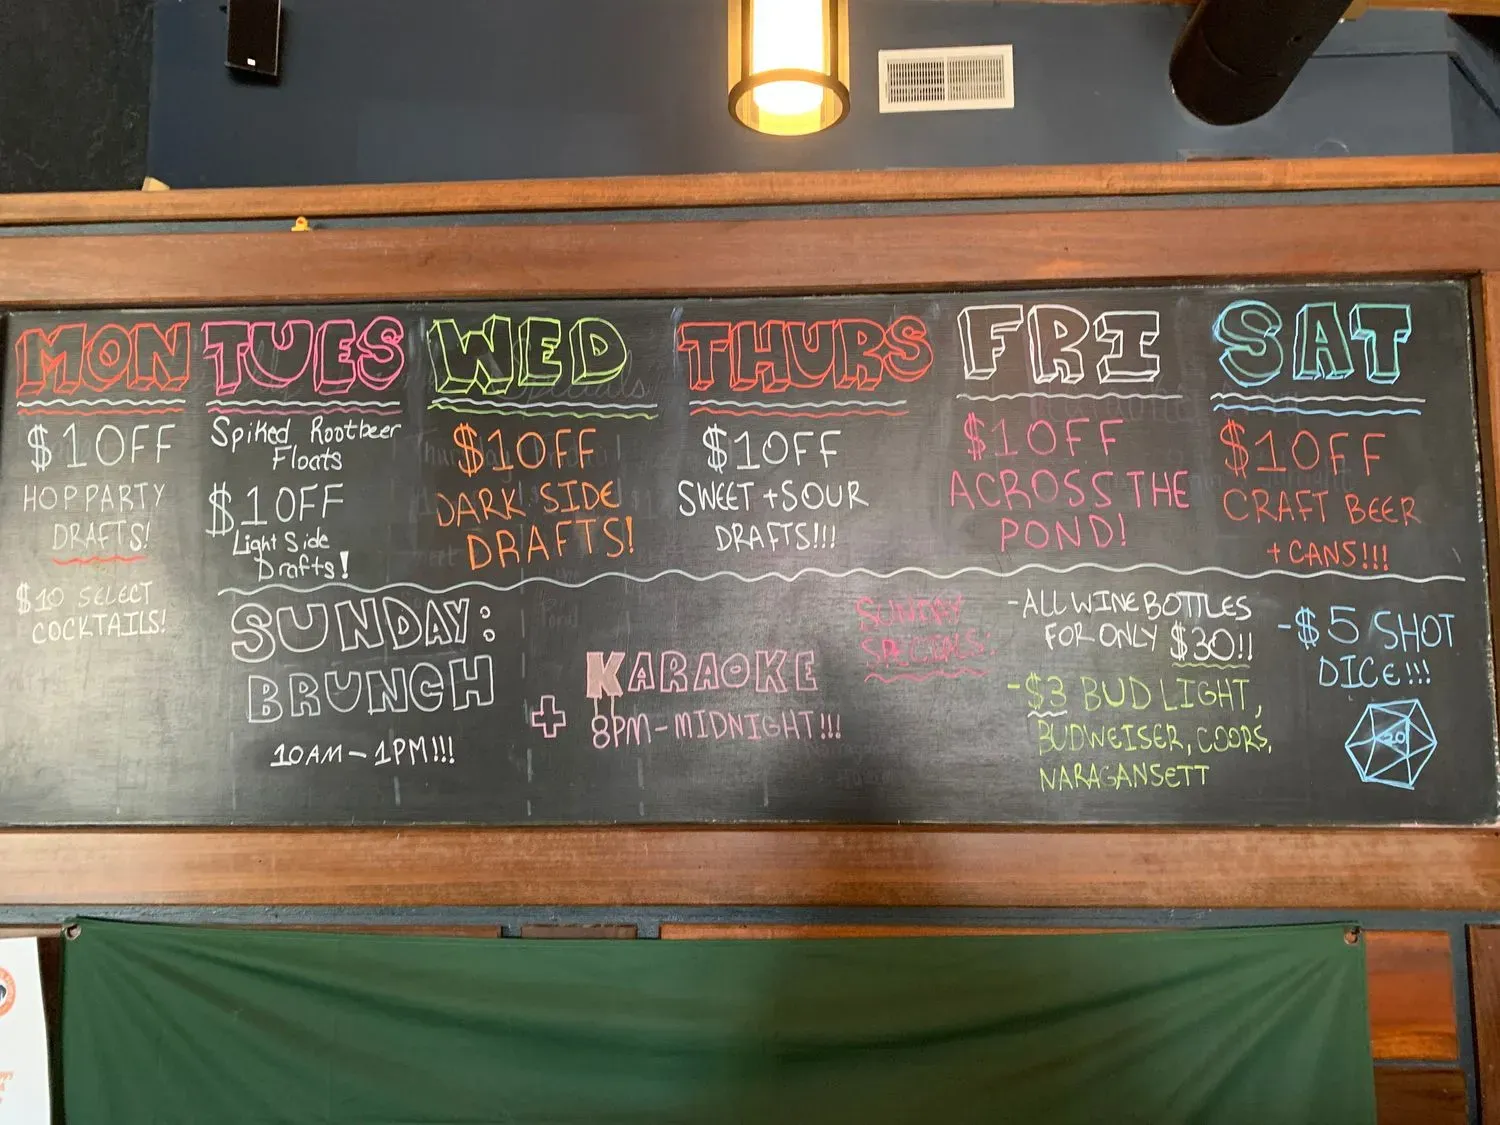 MON
$1 OFF
HOP PARTY
DRAFTS!
$10 SELECT
COCKTAILS!
TUES
Spiked Rootbeer
Floats
$1 OFF
Light Side
Drafts!
WED
$1 OFF
DARK SIDE
DRAFTS!
THURS
$1 OFF
SWEET + SOUR
DRAFTS!!!
FRI
$1 OFF
ACROSS THE
POND!
SAT
$1 OFF
CRAFT BEER
+ CANS!!!
SUNDAY:
BRUNCH
10AM - 1PM!!!
+ KARAOKE
8PM - MIDNIGHT!!!
SUNDAY
SPECIALS!
- ALL WINE BOTTLES
FOR ONLY $30!!
- $3 BUD LIGHT,
BUDWEISER, COORS,
NARAGANSETT
- $5 SHOT
DICE!!!
20